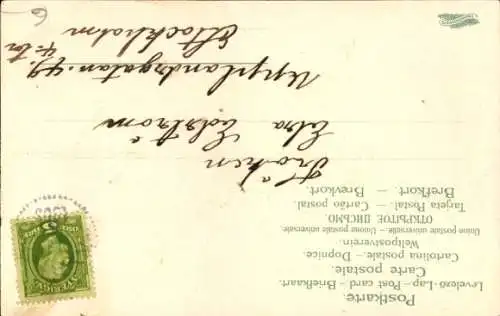 Postkarte.
Levelező-Lap - Post card - Briefkaart.
Carte postale.
Cartolina postale - Dopnice.
Weltpostverein.
Union postale universelle - Unione postale universale.
ОТКРЫТОЕ ПИСЬМО.
Tarjeta Postal. Cartão postal.
Brefkort. - Brevkort.
Fröken
Elsa Edström
Upplandsgatan 49.
4 tr
Stockholm
SVERIGE
6